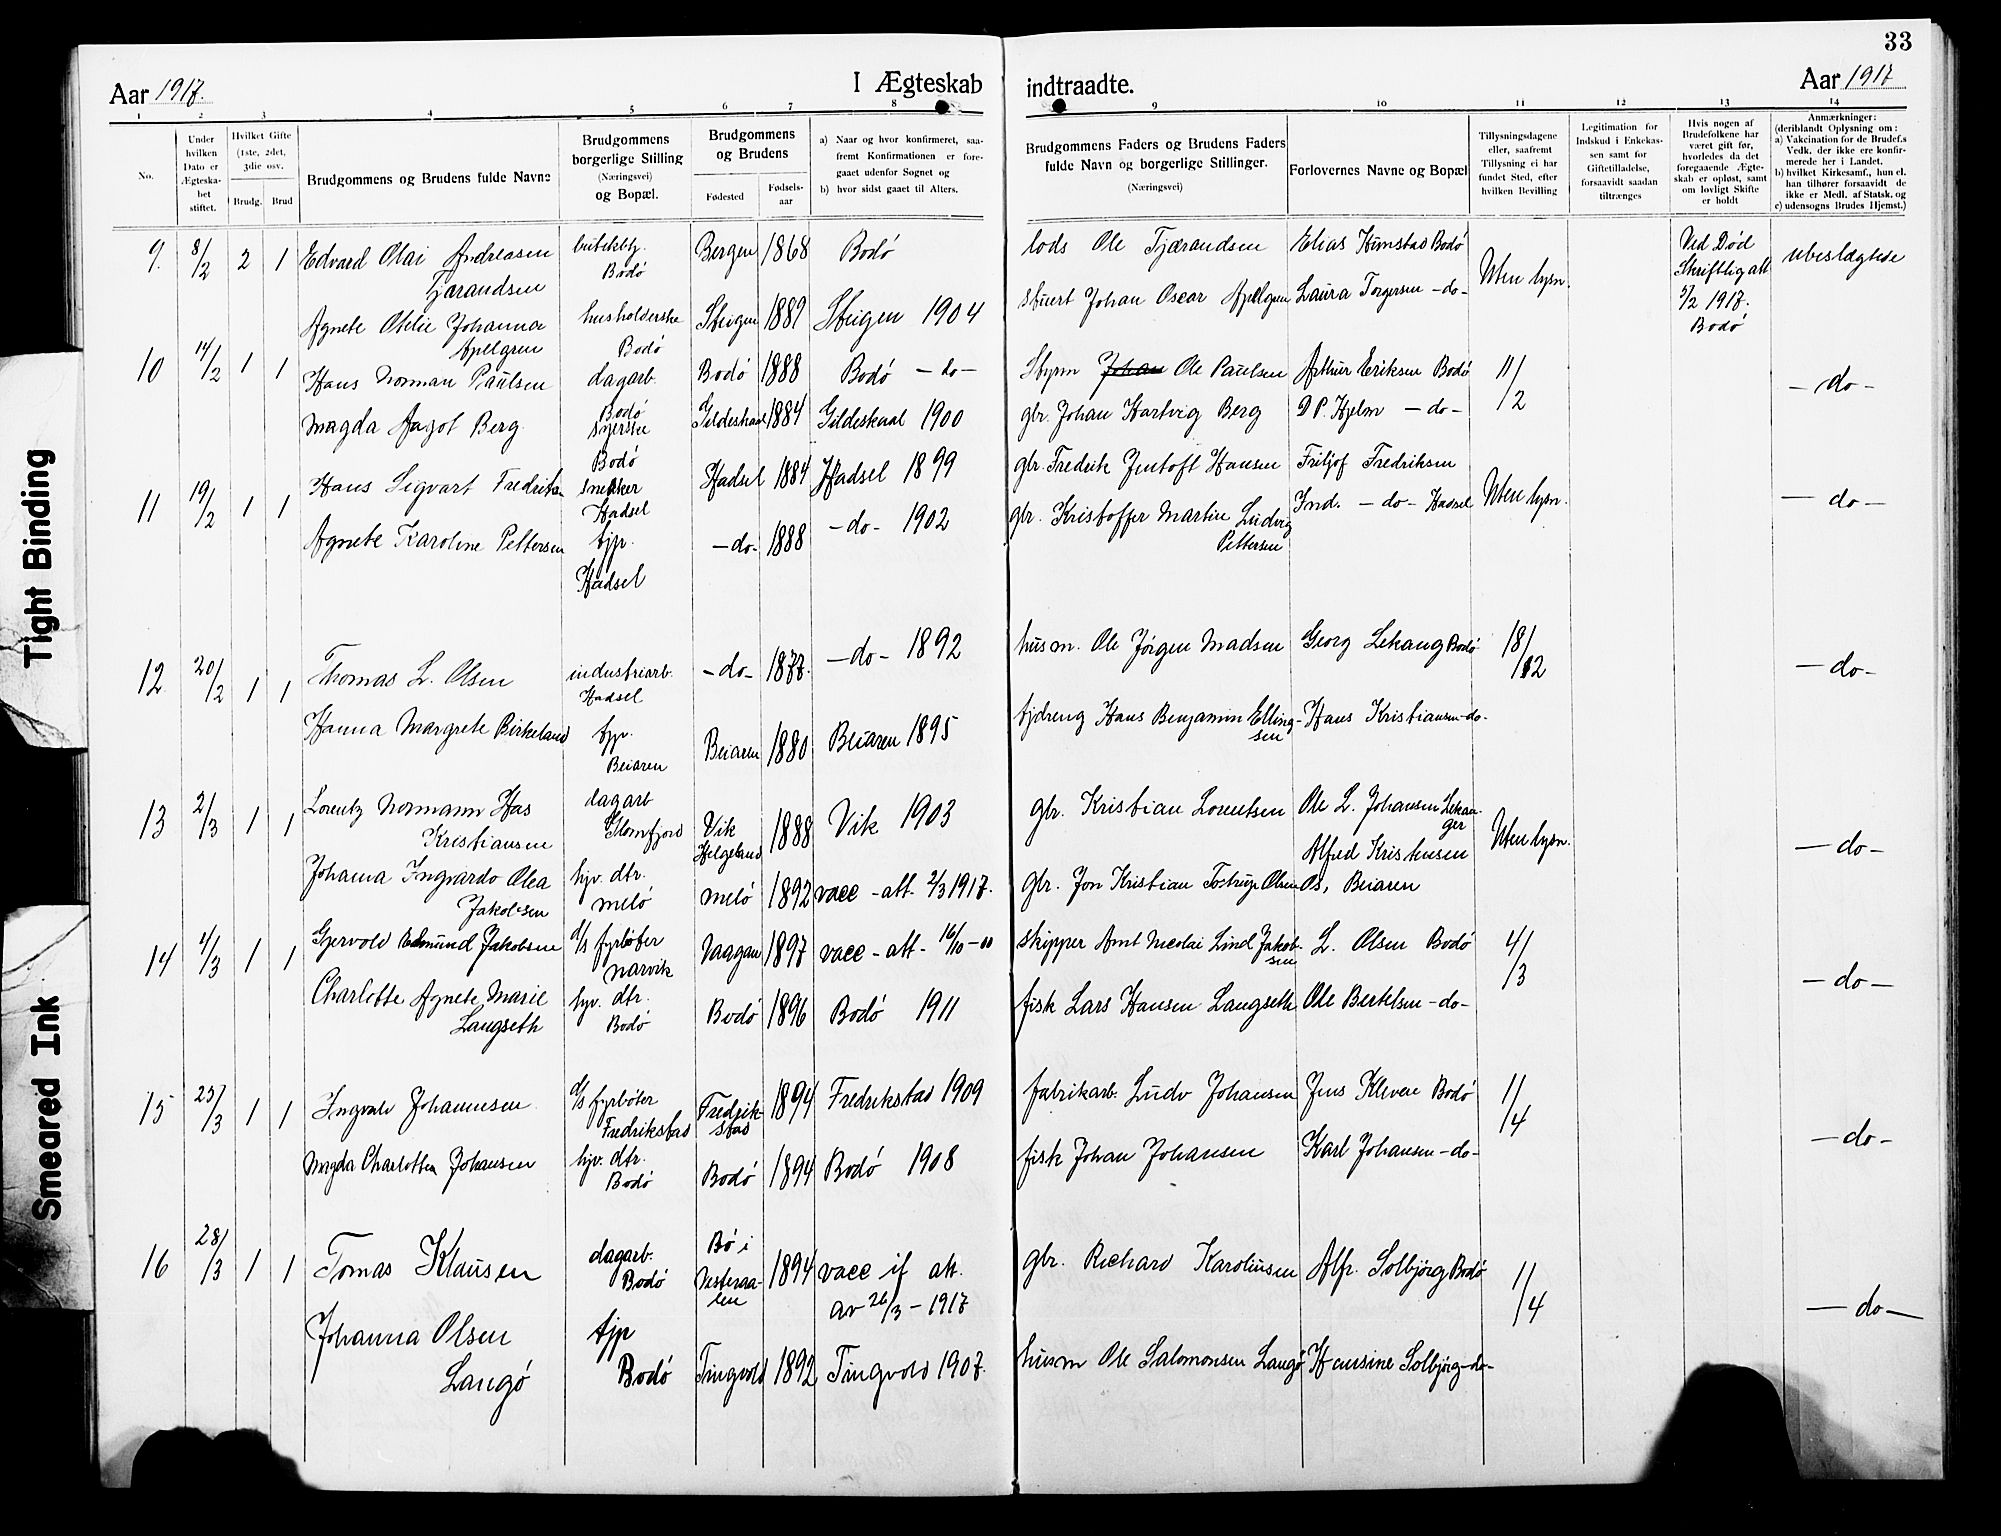 33
Aar 1917.
I Ægteskab indtraadte.
Aar 1917
1 2 3 4 5 6 7 8 9 10 11 12 13 14
No.
Under hvilken Dato er Ægteskabet stiftet.
Hvilket Gifte (1ste, 2det, 3die osv.
Brudg. Brud
Brudgommens og Brudens fulde Navne
Brudgommens borgerlige Stilling (Næringsvei) og Bopæl.
Brudgommens og Brudens
Fødested Fødselsaar
a) Naar og hvor konfirmeret, saafremt Konfirmationen er foregaaet udenfor Sognet og
b) hvor sidst gaaet til Alters.
Brudgommens Faders og Brudens Faders fulde Navn og borgerlige Stillinger.
(Næringsvei)
Forlovernes Navne og Bopæl
Tillysningsdagene eller, saafremt Tillysning ei har fundet Sted, efter hvilken Bevilling
Legitimation for Indskud i Enkekassen samt for Giftetilladelse, forsaavidt saadan tiltrænges
Hvis nogen af Brudefolkene har været gift før, hvorledes da det foregaaende Ægteskab er opløst, samt om lovligt Skifte er holdt
Anmærkninger:
(deriblandt Oplysning om:
a) Vakcination for de Brudef.s Vedk. der ikke ere konfirmerede her i Landet.
b) hvilket Kirkesamf., hun el. han tilhører forsaavidt de ikke er Medl. af Statsk. og
c) udensogns Brudes Hjemst.)
9. 8/2 2 1 Edvard Olai Andreasen Tjærandsen Bodö Bergen 1868 Bodö lods Ole Tjærandsen Elias Kunstad Bodö Uten lysn. Ved Död Skriftlig att 5/2 1917. Bodö ubeslægtede
Agnete Otelie Johanna Apellgren husholderske Bodö Steigen 1889 Steigen 1904 stuert Johan Oscar Apellgren Laura Torgersen -do-
10 14/2 1 1 Hans Norman Paulsen dagarb. Bodö Bodö 1888 Bodö -do- Styrm Johan Ole Paulsen Arthur Eriksen Bodö 11/2 -do-
Magda Aagot Berg syerske Bodö Gildeskaal 1884 Gildeskaal 1900 gbr. Johan Hartvig Berg D P. Hjelm -do-
11 19/2 1 1 Hans Sigvart Fredriksen snekker Hadsel Hadsel 1884 Hadsel 1899 gbr. Fredrik Jentoft Hansen Fritjof Fredriksen Uten lysn. -do-
Agnete Karoline Pettersen tjp. Hadsel -do- 1888 -do- 1902 gbr. Kristoffer Martin Ludvig Pettersen Ind. -do- Hadsel
12 20/2 1 1 Thomas L. Olsen industriarb. Hadsel -do- 1877. -do- 1892 husm. Ole Jörgen Madsen Georg Lekang Bodö 18/12 -do-
Hanna Margrete Birkeland tjp. Beiaren Beiaren 1880 Beiaren 1895 tjdreng Hans Benjamin Ellingsen Hans Kristiansen -do-
13 2/3 1 1 Lorentz Normann Has Kristiansen dagarb Glomfjord Vik Helgeland 1888 Vik 1903 gbr. Kristian Lorentsen Ole L. Johansen Lekanger Uten lysn. -do-
Johanna Ingvarda Olea Jakobsen hjv. dtr. Melö Melö 1892 vacc - att. 2/3 1917. gbr. Jon Kristian Tostrup Olsen Alfred Kristensen Os, Beiaren
14 4/3 1 1 Gjervold Edmund Jakobsen d/s fyrböter Narvik Vaagan 1897 vacc - att - 16/10 - 00 skipper Arnt Nicolai Lind Jakobsen L. Olsen Bodö 4/3 -do-
Charlotte Agnete Marie Langseth hjv. dtr. Bodö Bodö 1896 Bodö 1911 fisk Lars Hansen Langseth Ole Bertelsen -do-
15 25/3 1 1 Ingvald Johannesen d/s fyrböter Fredrikstad Fredrikstad 1894 Fredrikstad 1909 fabrikarb. Ludv Johansen Jens Klevene Bodö 1/4 -do-
Magda Charlotten Johansen hjv. dtr. Bodö Bodö 1894 Bodö 1908 fisk Johan Johansen Karl Johansen -do-
16 28/3 1 1 Tomas Klausen dagarb. Bodö Bö i Vesteraalen 1894 vacc if att. av 26/3 - 1917 gbr. Richard Karoliusen Alfr. Solbjörg Bodö 1/4 -do-
Johanna Olsen Langö tjp Bodö Tingvold 1892 Tingvold 1907. husm Ole Salomonsen Langö Hansine Solbjörg -do-
Tight Binding
Smeared Ink